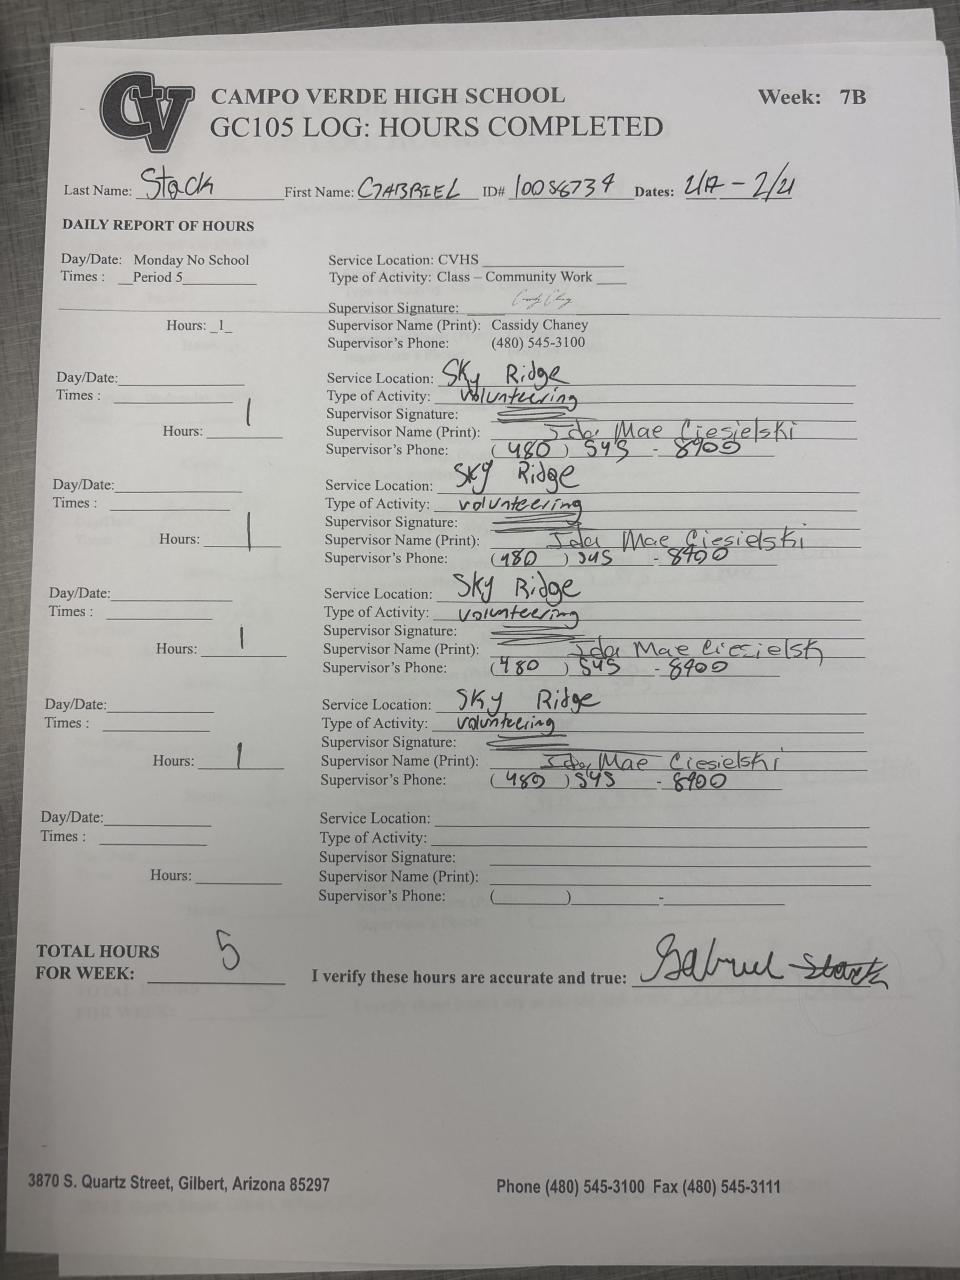 CV
CAMPO VERDE HIGH SCHOOL Week: 7B
GC105 LOG: HOURS COMPLETED
Last Name: Stack First Name: GABRIEL ID# Dates: - 2/21
DAILY REPORT OF HOURS
Day/Date: Monday No School Service Location: CVHS
Times : Period 5 Type of Activity: Class – Community Work
Supervisor Signature:
Hours: _1_ Supervisor Name (Print): Cassidy Chaney
Supervisor's Phone: (480) 545-3100
Day/Date: Service Location: Sky Ridge
Times : Type of Activity: volunteering
Supervisor Signature:
Hours: 1 Supervisor Name (Print): Ida Mae Ciesielski
Supervisor's Phone: (480) 545 - 8900
Day/Date: Service Location: Sky Ridge
Times : Type of Activity: volunteering
Supervisor Signature:
Hours: 1 Supervisor Name (Print): Ida Mae Ciesielski
Supervisor's Phone: (480) 545 - 8900
Day/Date: Service Location: Sky Ridge
Times : Type of Activity: volunteering
Supervisor Signature:
Hours: 1 Supervisor Name (Print): Ida Mae Ciesielsk
Supervisor's Phone: (480) 545 - 8900
Day/Date: Service Location: Sky Ridge
Times : Type of Activity: volunteering
Supervisor Signature:
Hours: 1 Supervisor Name (Print): Ida Mae Ciesielski
Supervisor's Phone: (480) 545 - 8900
Day/Date: Service Location:
Times : Type of Activity:
Supervisor Signature:
Hours: Supervisor Name (Print):
Supervisor's Phone: ( ) -
TOTAL HOURS
FOR WEEK: 5 I verify these hours are accurate and true: Gabriel Stack
3870 S. Quartz Street, Gilbert, Arizona 85297 Phone (480) 545-3100 Fax (480) 545-3111